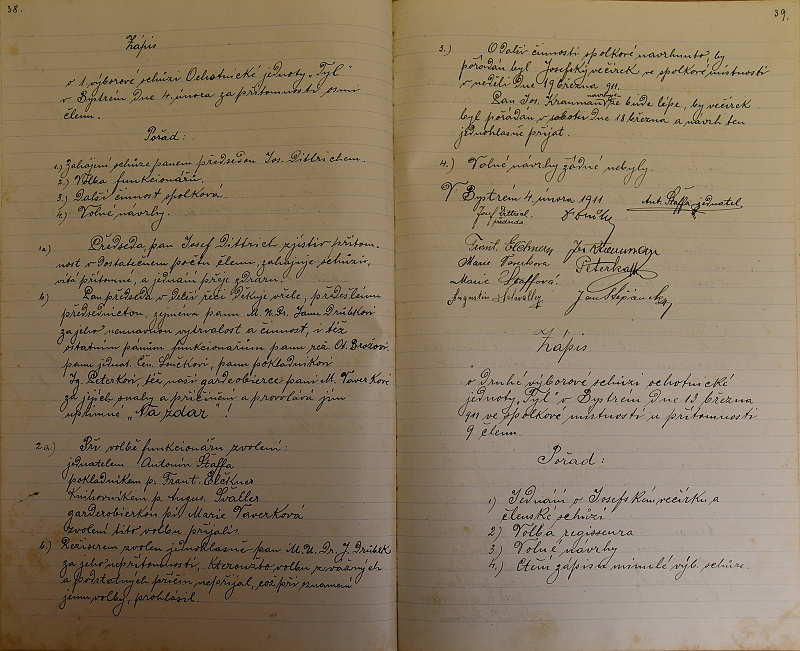 38.
Zápis
o 1. výborové schůzi Ochotnické jednoty „Tyl"
v Bystrém dne 4. února za přítomnosti osmi
členů.
Pořad:
1.) Zahájení schůze panem předsedou Jos. Dittrichem.
2.) Volba funkcionářů.
3.) Další činnost spolková.
4.) Volné návrhy.
1a) Předseda, pan Josef Dittrich zjistiv přítom-
nost v dostatečném počtu členů, zahajuje schůzi,
vítá přítomné, a jednání přeje zdaru.
b) Pan předseda v další řeči děkuje vřele, předešlému
předsednictvu, zejména panu M. U. Dr. Janu Drúbkovi
za jeho neunavnou vytrvalost a činnost, i též
ostatním pánům funkcionářům panu rež. Ot. Brožovi,
panu jednat. Čen. Součkovi, panu pokladníkovi
Ig. Peterkovi, též naší garderobierce paní M. Taverkové
za jejich snahy a přičinění a provolává jim
upřímné „Na zdar"!
2a) Při volbě funkcionářů zvoleni:
jednatelem Antonín Štaffa
pokladníkem p. Frant. Elčkner
knihovníkem p. Augus. Švaller
garderobierkou pí. Marie Taverková
zvolení tito volbu přijali.
b.) Režiserem zvolen jednohlasně pan M. U. Dr. J. Drúbek
za jeho nepřítomnosti, kteroužto volbu z vážných
a podstatných příčin nepřijal, což při oznámení
jemu volby, prohlásil.
39.
3.) O další činnosti spolkové navrhnuto, by
pořádán byl Josefský večírek ve spolkové místnosti
v neděli dne 19 března 911.
Pan Jos. Krauman navrhuje že bude lépe, by večírek
byl pořádán v sobotu dne 18. března a návrh ten
jednohlasně přijat.
4.) Volné návrhy žádné nebyly.
V Bystrém 4. února 1911
Ant. Štaffa jednatel
Josef Dittrich
předseda
Frant. Elčkner Jos Krauman
Marie Taverkova Peterka
Marie Štaffová
Augustin Jan Štěpánek
Zápis
o druhé výborové schůzi ochotnické
jednoty „Tyl" v Bystrém dne 13 března
911 ve spolkové místnosti u přítomnosti
9 členů
Pořad:
1) Jednání o Josefském večírku a
členské schůzi
2) Volba regisseura
3) Volné návrhy
4.) Čtení zápisu minulé výb. schůze.